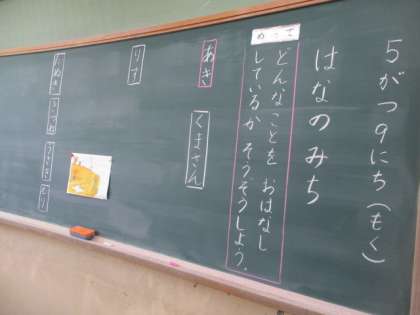 5がつ9にち(もく)
はなのみち
めあて
どんなことを おはなし
しているか そうぞうしよう。
あさ
くまさん
りす
たぬき
きつね
うさぎ